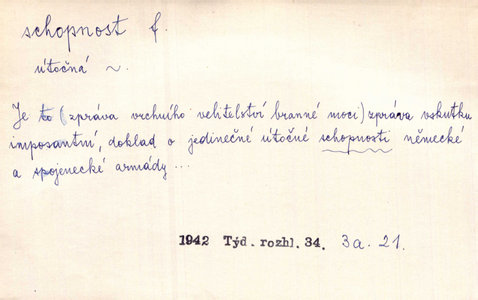 schopnost f.
útočná ~.
Je to (zpráva vrchního velitelství branné moci) zpráva vskutku
imposantní, doklad o jedinečné útočné schopnosti německé
a spojenecké armády...
1942 Týd. rozhl. 34. 3a. 21.